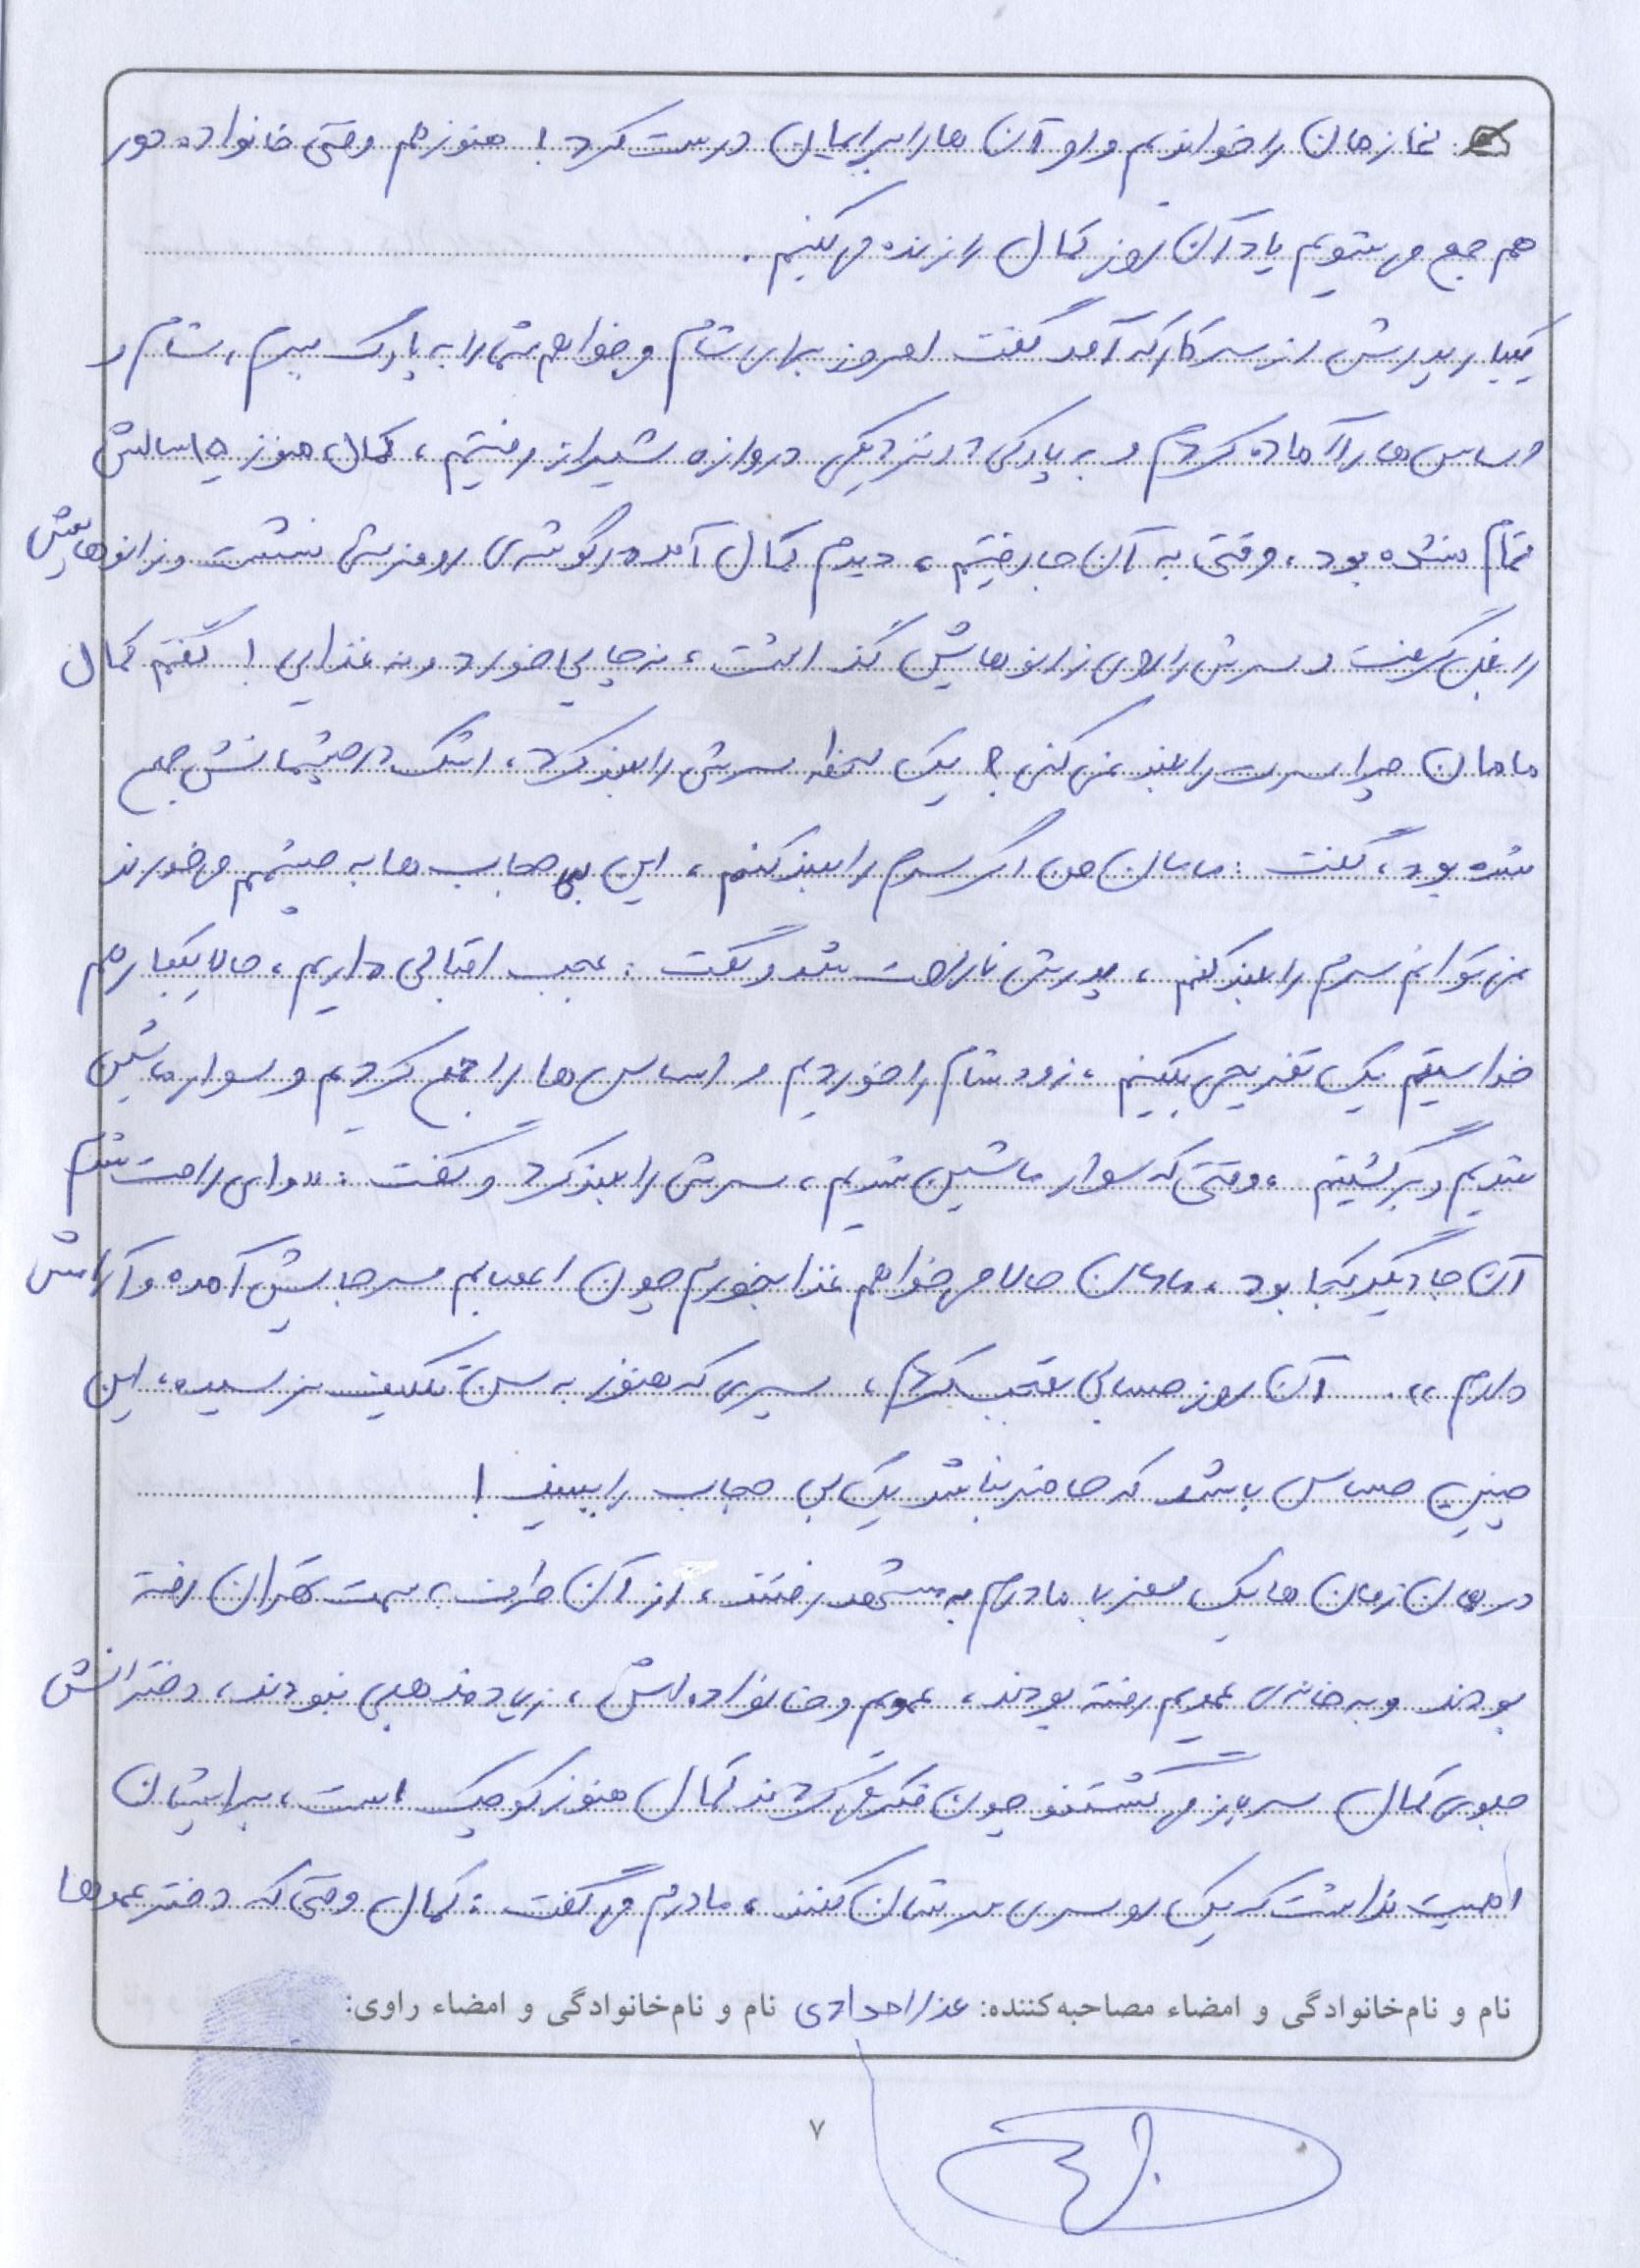 نمازمان را خواندیم و او آن ها را برایمان درست کرد! هنوز هم وقتی خانواده دور
هم جمع می شویم یاد آن روز کمال را زنده می کنیم.
یکبار پدرش از سر کار که آمد گفت امروز برای شام می خواهم شما را به پارک ببرم، شام و
وسایس ها را آماده کردم و به پارکی در نزدیکی دروازه شیراز رفتیم، کمال هنوز ۱۵ سالش
تمام نشده بود، وقتی به آن جا رفتیم، دیدم کمال آمد در گوشه ی روفرشی نشست و زانوهایش
را بغل گرفت و سرش را روی زانوهایش گذاشت، نه چایی خورد و نه غذایی! گفتم کمال
مامان چرا سرت را بلند نمی کنی؟ یک لحظه سرش را بلند کرد، اشک در چشمانش جمع
شده بود، گفت: مامان من اگر سرم را بلند کنم، این بی حجاب ها به چشمم می خورند
نمی توانم سرم را بلند کنم، پدرش ناراحت شد و گفت: عجب اقبالی داریم، حالا یکبار هم
خواستیم یک تفریحی بکنیم، زود شام را خوردیم و اساس ها را جمع کردیم و سوار ماشین
شدیم و برگشتیم، وقتی که سوار ماشین شدیم، سرش را بلند کرد و گفت: «وای راحت شدم
آن جا دیگر کجا بود، مامان حالا می خواهم غذا بخورم چون اعصابم سر جایش آمده و آرامش
دارم». آن روز حسابی تعجب کردم، پسری که هنوز به سن تکلیف نرسیده، این
چنین حساس باشد که حاضر نباشد یک بی حجاب را ببیند!
در همان زمان ها یک سفر با مادرم به مشهد رفتند، از آن طرف به سمت تهران رفته
بودند و به خانه ی عمویم رفته بودند، عمویم و خانواده اش، زیاد مذهبی نبودند، دخترانش
جلوی کمال سرباز می گشتند چون فکر می کردند کمال هنوز کوچک است، برایشان
اهمیت نداشت که یک روسری سرشان کنند، مادرم می گفت: کمال وقتی که دختر عموها
نام و نام‌خانوادگی و امضاء مصاحبه‌کننده: عذرا حدادی نام و نام‌خانوادگی و امضاء راوی:
۷